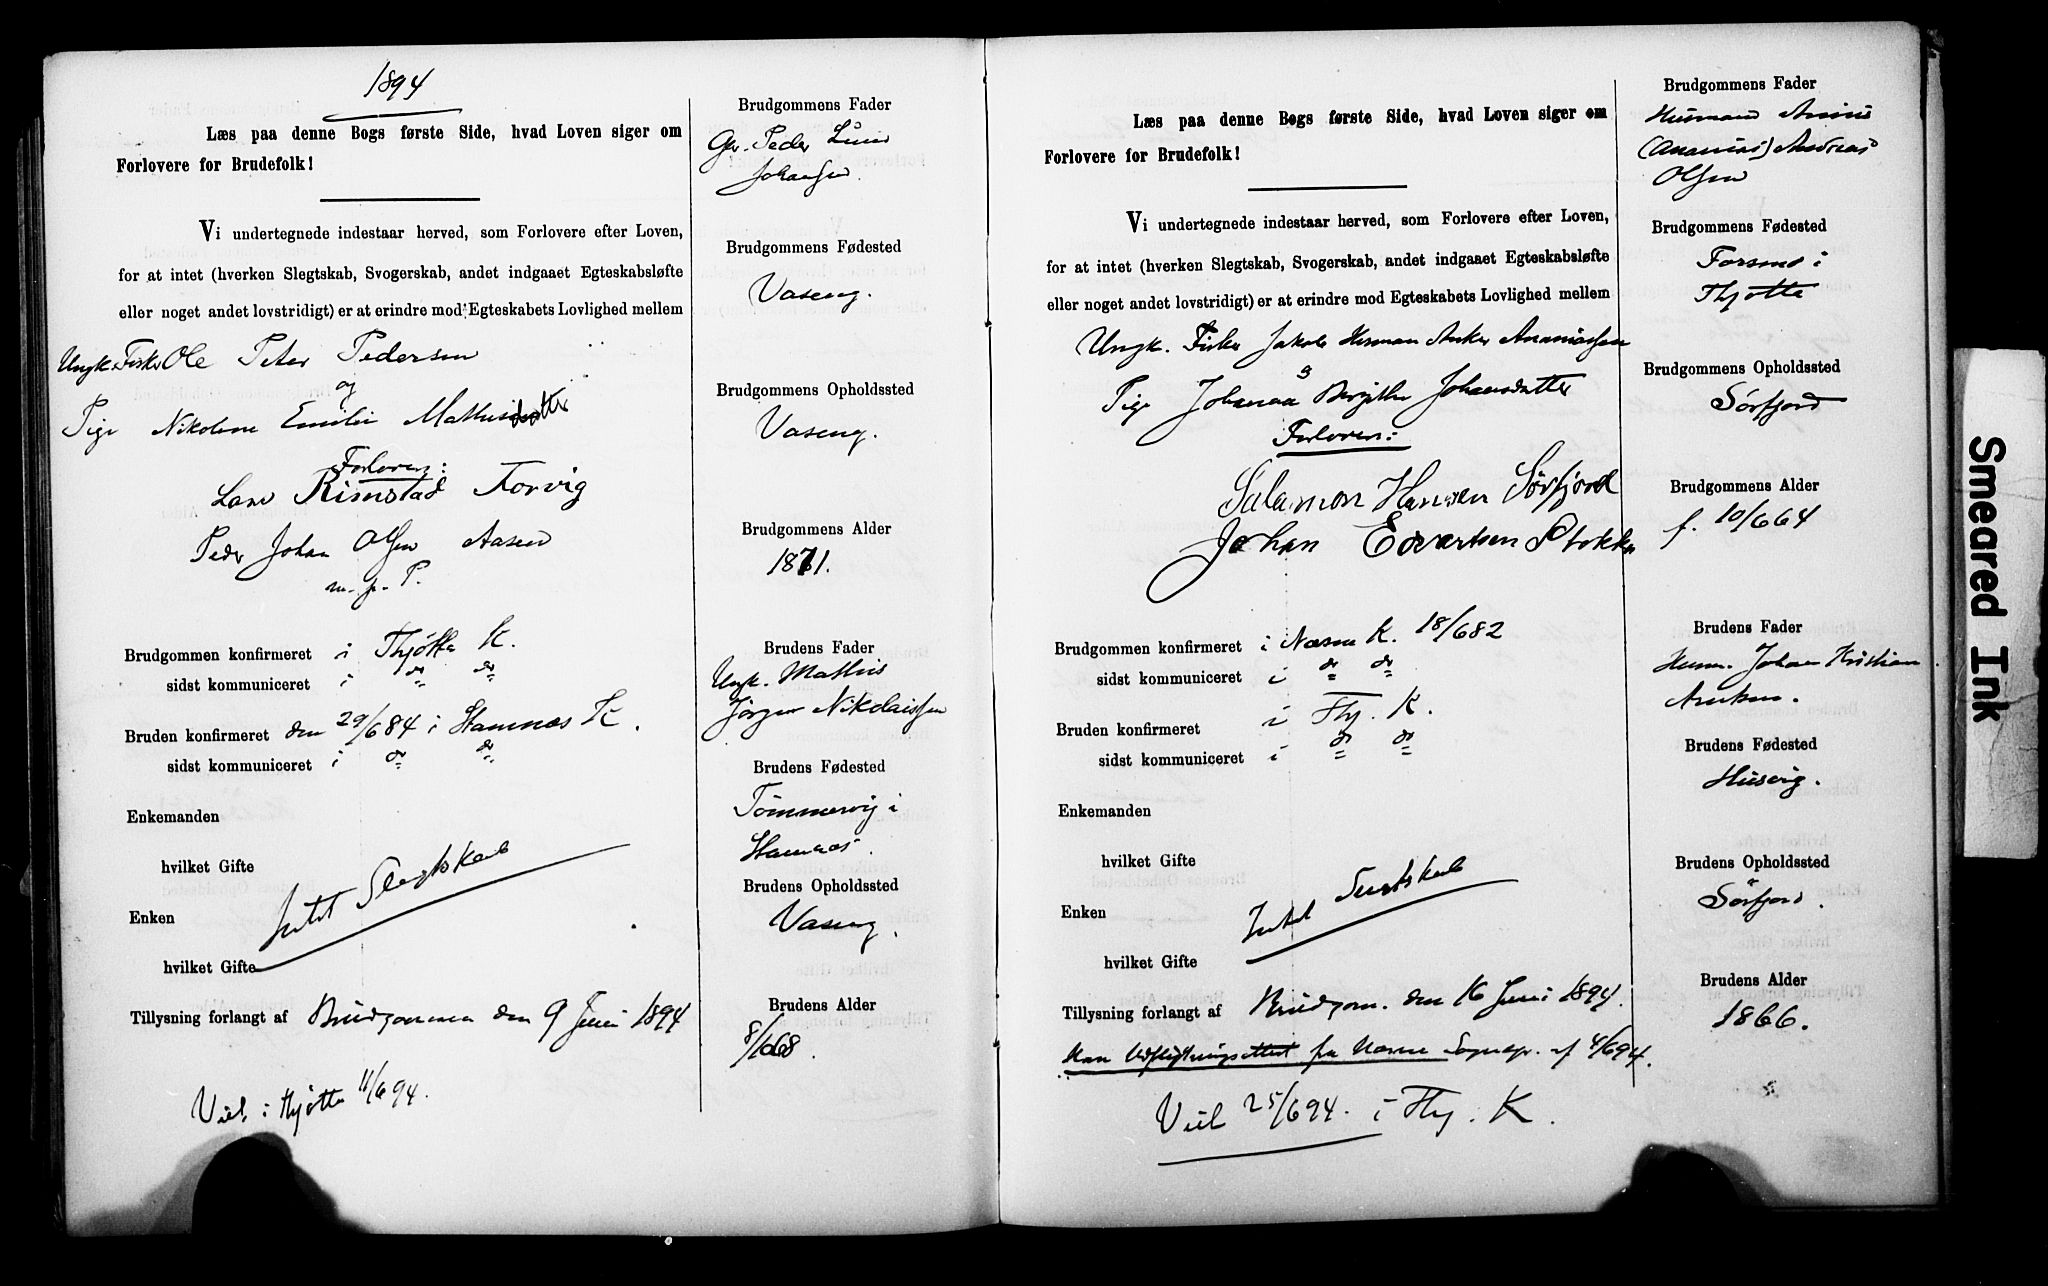 1894
Læs paa denne Bogs første Side, hvad Loven siger om
Forlovere for Brudefolk!
Vi undertegnede indestaar herved, som Forlovere efter Loven,
for at intet (hverken Slegtskab, Svogerskab, andet indgaaet Egteskabsløfte
eller noget andet lovstridigt) er at erindre mod Egteskabets Lovlighed mellem
Ungk. Fisker Ole Peter Pedersen
og
Pige Nikoline Emilie Mathisdatter
Forlovere:
Rimstad Forvig
Peder Johan Olsen Aasen
m. p. P.
Brudgommen konfirmeret i Thjøtta K.
sidst kommuniceret i do do
Bruden konfirmeret den 29/6 84 i Stamnæs K.
sidst kommuniceret i do do
Enkemanden
hvilket Gifte
Intet Slegtskab
Enken
hvilket Gifte
Tillysning forlangt af Brudgommen den 9 Juni 1894
Viet i Thjøtta 11/6 94.
Brudgommens Fader
Peder Lund
Johansen.
Brudgommens Fødested
Vaseng.
Brudgommens Opholdssted
Vaseng.
Brudgommens Alder
1871.
Brudens Fader
Ungk. Mathis
Jörgen Nikolaissen
Brudens Fødested
Tömmervig i
Stamnæs.
Brudens Opholdssted
Vaseng.
Brudens Alder
Læs paa denne Bogs første Side, hvad Loven siger om
Forlovere for Brudefolk!
Vi undertegnede indestaar herved, som Forlovere efter Loven,
for at intet (hverken Slegtskab, Svogerskab, andet indgaaet Egteskabsløfte
eller noget andet lovstridigt) er at erindre mod Egteskabets Lovlighed mellem
Ungk. Fisker Jakob Herman Anker Ananiassen
og
Pige Johanna Bergithe Johansdatter
Forlovere:
Salamon Hansen Sörfjord
Johan Edvartsen Stokka
Brudgommen konfirmeret i Næsne K. 18/6 82
sidst kommuniceret i do do
Bruden konfirmeret i Thj. K.
sidst kommuniceret i do do
Enkemanden
hvilket Gifte
Intet Slegtskab
Enken
hvilket Gifte
Tillysning forlangt af Brudgom. den 16 Juni 1894.
Har Udflytningsattest fra Næsne Sognepr. af 4/6 94.
Viet 25/6 94. i Thj. K.
Brudgommens Fader
Husmand
(Ananias) Andreas
Olsen
Brudgommens Fødested
Forsund i
Thjøtta
Brudgommens Opholdssted
Sörfjord
Brudgommens Alder
f. 10/6 64
Brudens Fader
Husm. Johan Kristian
Brudens Fødested
Husvig.
Brudens Opholdssted
Sörfjord.
Brudens Alder
1866.
Smeared Ink